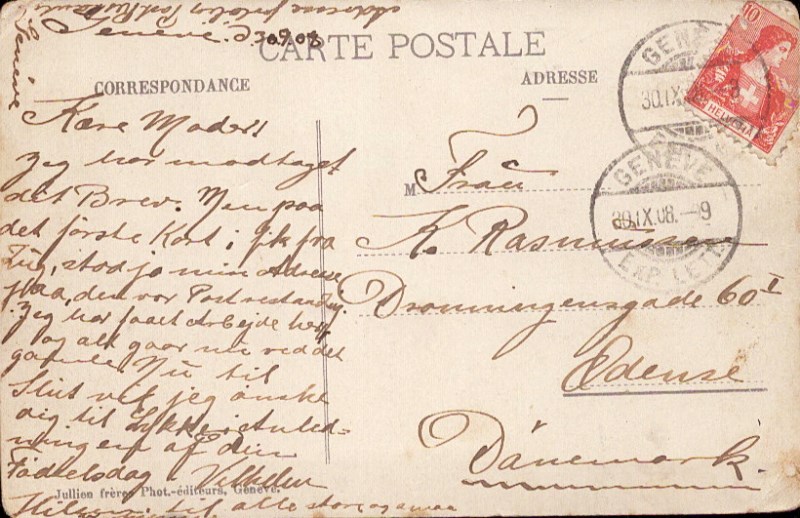 Adresse
Genève
Genève d. 30.9.08
CARTE POSTALE
CORRESPONDANCE
ADRESSE
Kære Moder!
Jeg har modtaget
det Brev. Men paa
det første Kort, i fik fra
mig, stod jo min Adresse
paa, den var Postrestante.
Jeg har faaet Arbejde her
og alt gaar nu ved det
gamle. Nu til
Slut vil jeg ønske
dig til Lykke i Anled-
ningen af din
Fødselsdag. Vilhelm
Hilsen til alle store og smaa
M
Frau
K. Rasmussen
Dronningensgade 60 I
Odense
Dänemark.
Jullien frères Phot.-éditeurs, Genève.
10
HELVETIA
GENÈVE
30.IX.08.-9
GENÈVE
30.IX.08.-9
EXP. LETT.